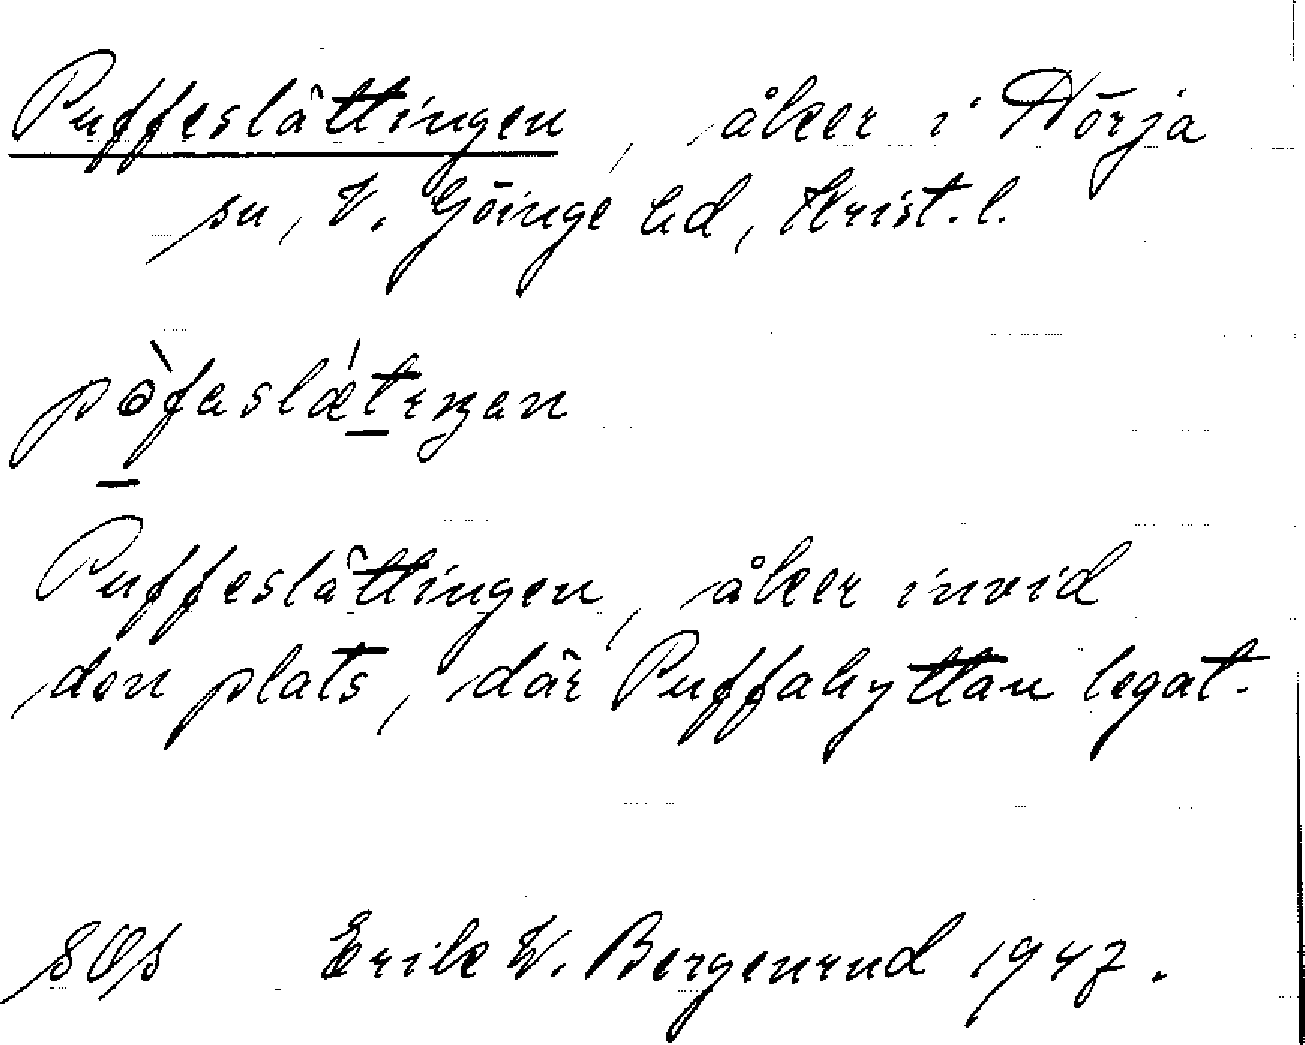 Puffeslättingen, åker i Nörja
sn, V. Göinge hd, Krist. l.
pòfaslǽtıŋan
Puffeslättingen, åker invid
den plats, där Puffahyttan legat.
SOs Erik W. Bergenrud 1947.